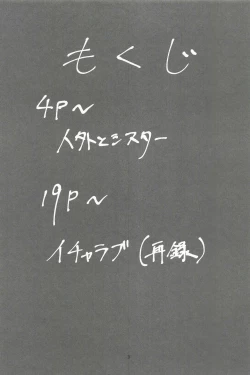 もくじ
4P～
人外とシスター
19P～
イチャラブ(再録)